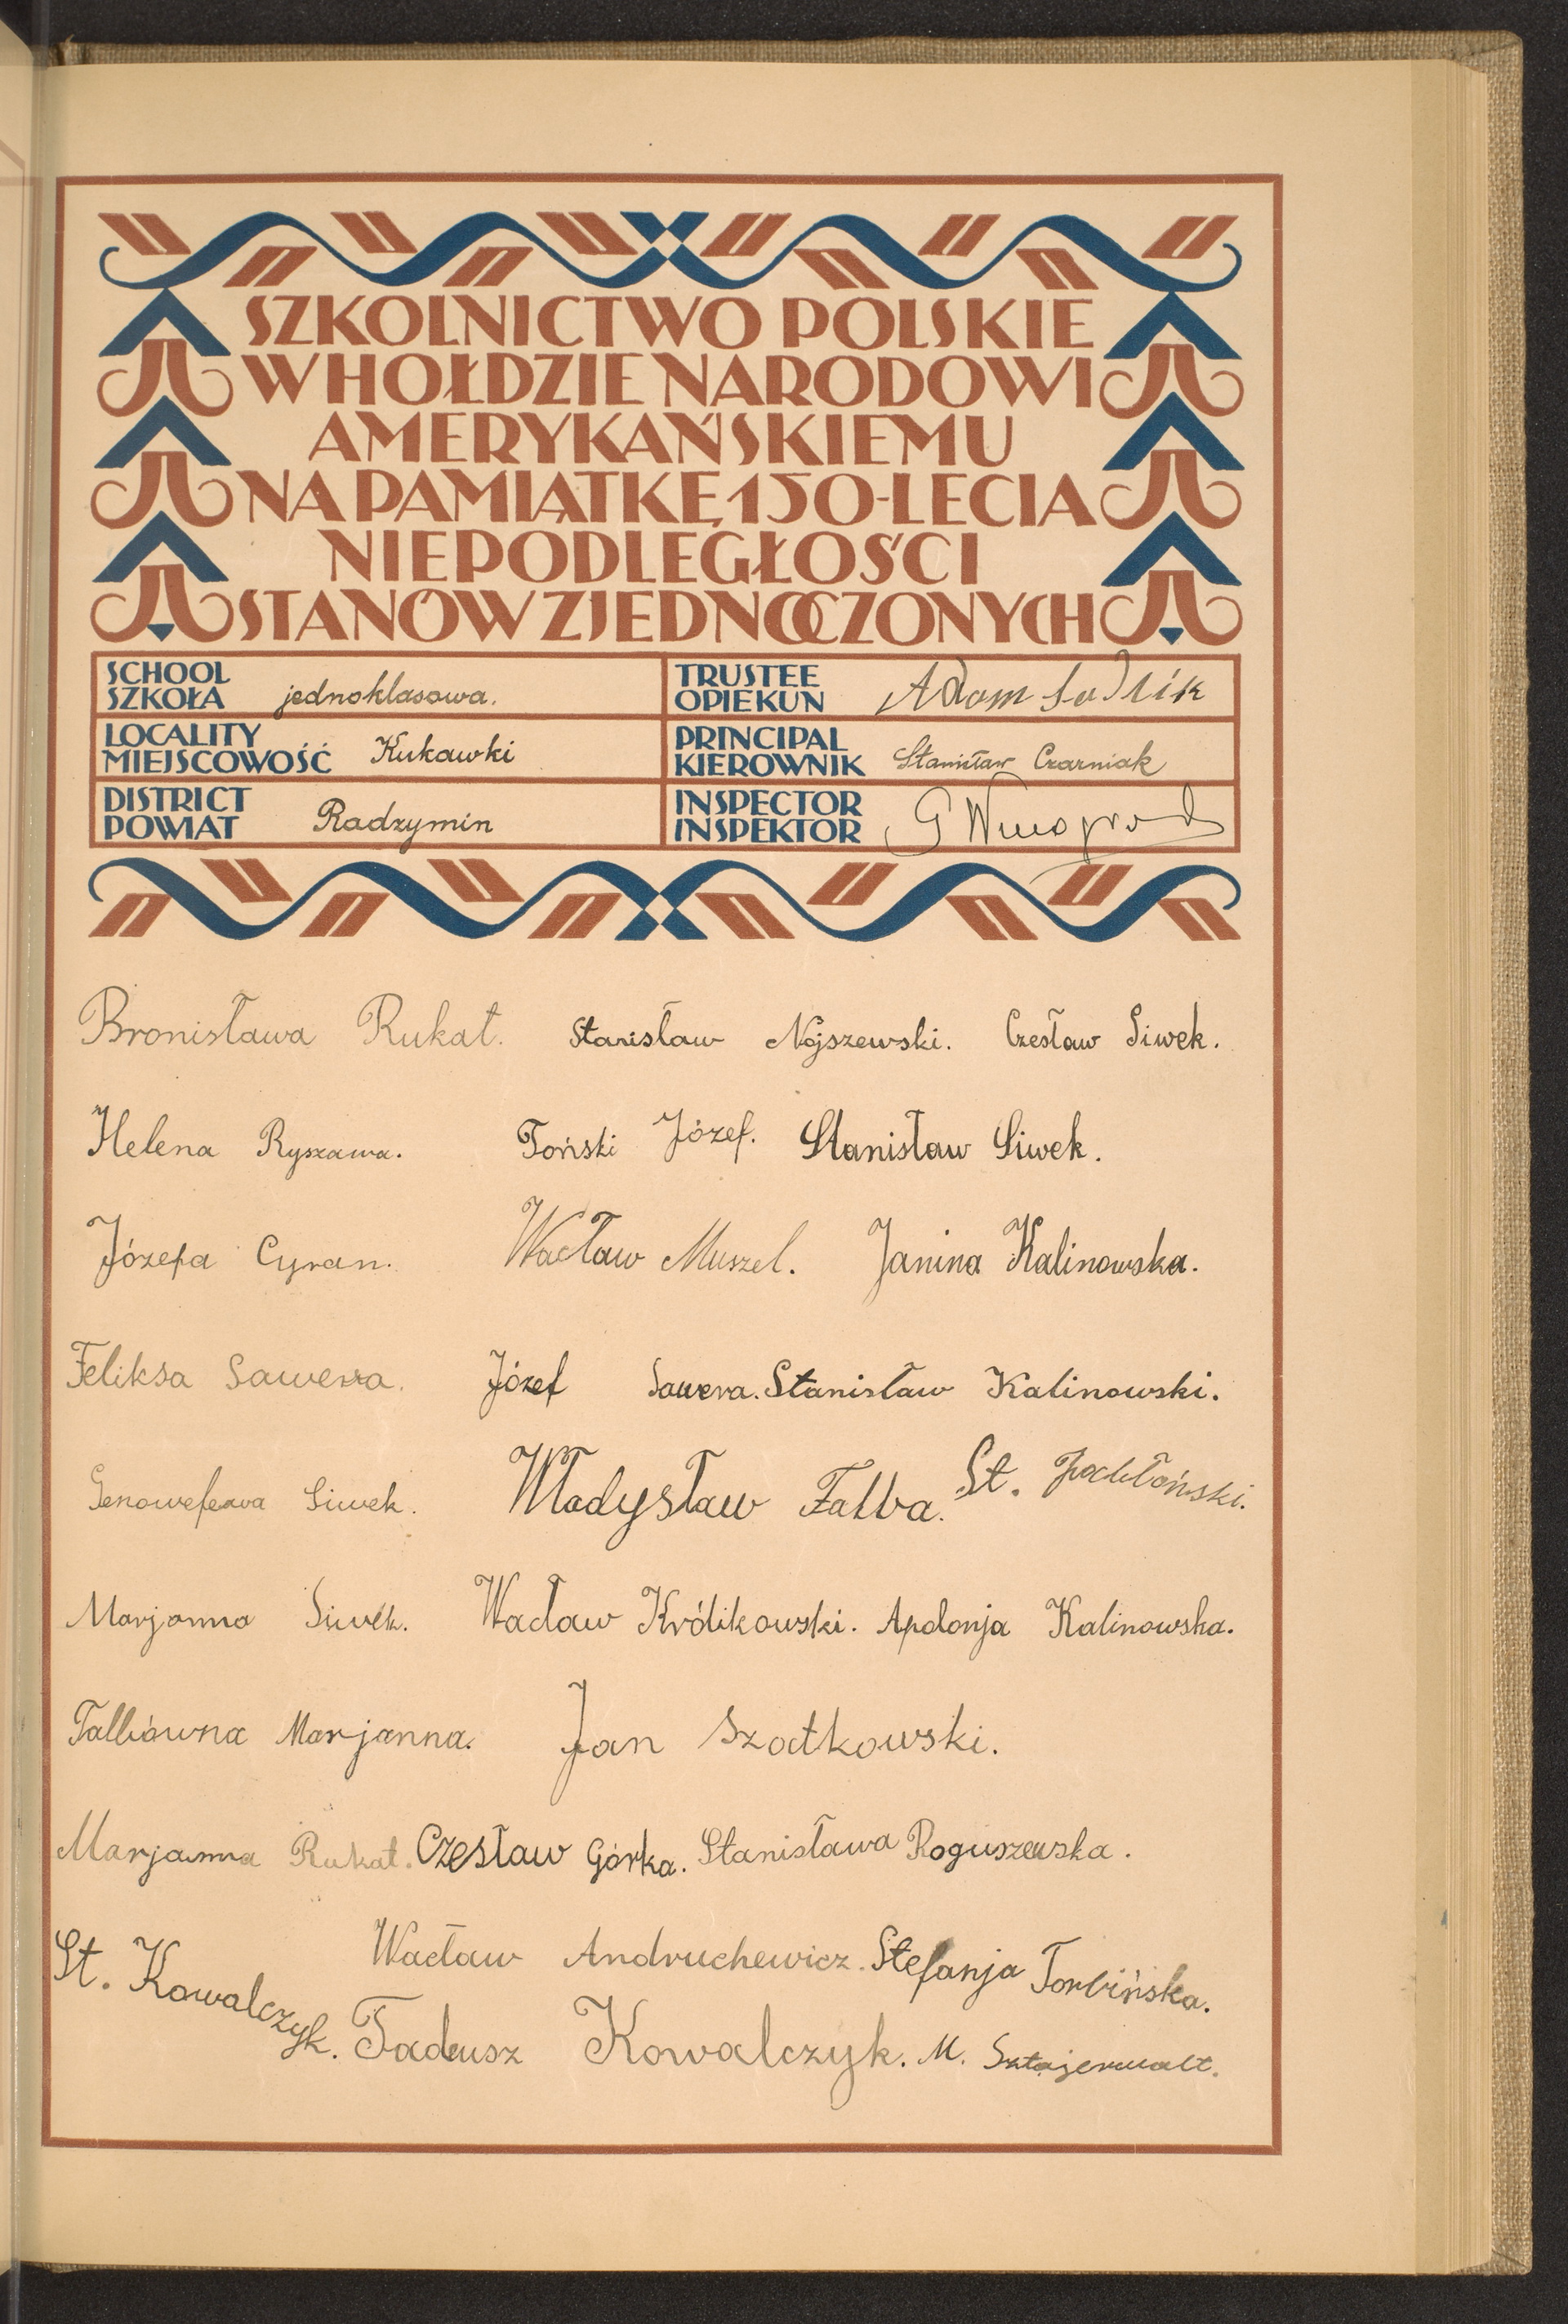 SZKOLNICTWO POLSKIE
W HOŁDZIE NARODOWI
AMERYKAŃSKIEMU
NA PAMIĄTKĘ 150-LECIA
NIEPODLEGŁOŚCI
STANÓW ZJEDNOCZONYCH
SCHOOL
SZKOŁA jednoklasowa.
TRUSTEE
OPIEKUN Adam
LOCALITY
MIEJSCOWOŚĆ Kukawki
PRINCIPAL
KIEROWNIK Stanisław Czarniak
DISTRICT
POWIAT Radzymin
INSPECTOR
INSPEKTOR G
Bronisława Rukat. Stanisław Nojszewski. Czesław Siwek.
Helena Ryszawa. Toński Józef. Stanisław Siwek.
Józefa Cyran. Wacław Muszel. Janina Kalinowska.
Feliksa Sawera. Józef Sawera. Stanisław Kalinowski.
Siwek. Władysław Falba. St.
Marjanna Siwek. Wacław Królikowski. Apolonja Kalinowska.
Marjanna. Jan Szatkowski.
Marjanna Rukat. Czesław Górka. Stanisława Roguszewska.
St. Kowalczyk. Wacław Andruchewicz. Stefanja Torbińska.
Tadeusz Kowalczyk. M.